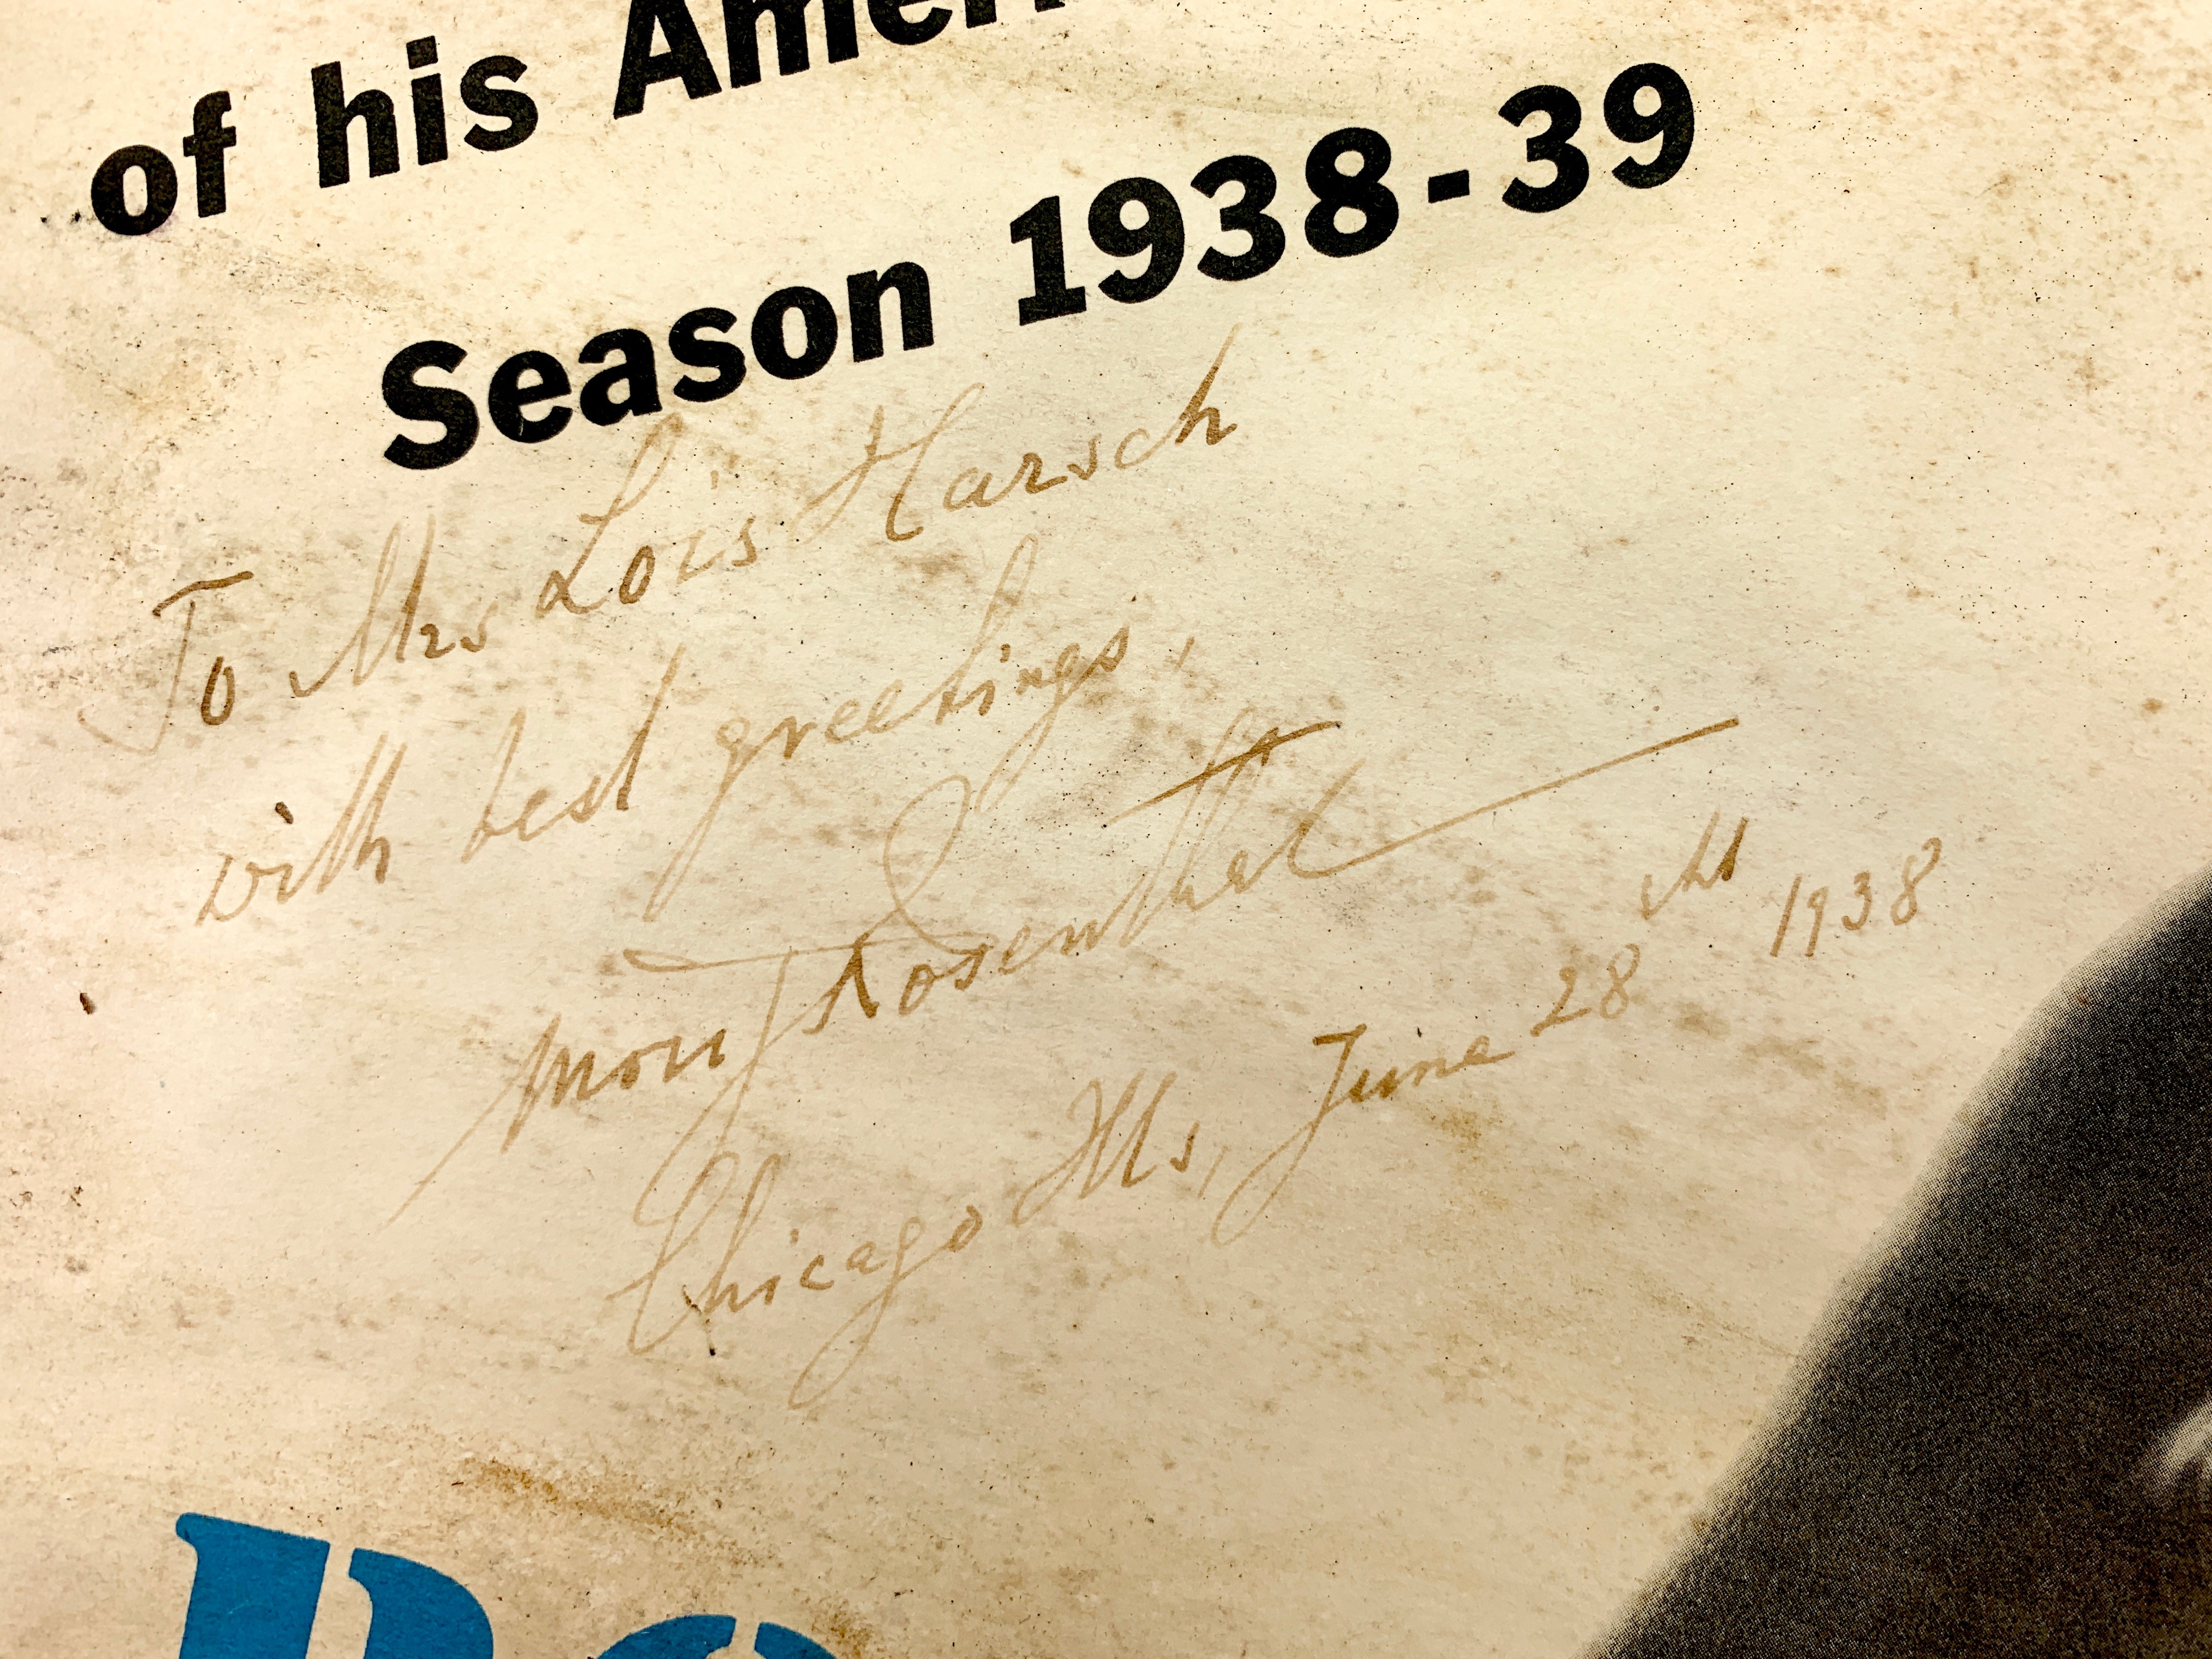 of his Amer
Season 1938-39
To Mrs Lois Harsch
with best greetings,
Moriz Rosenthal
Chicago Ills, June 28th 1938
Ro